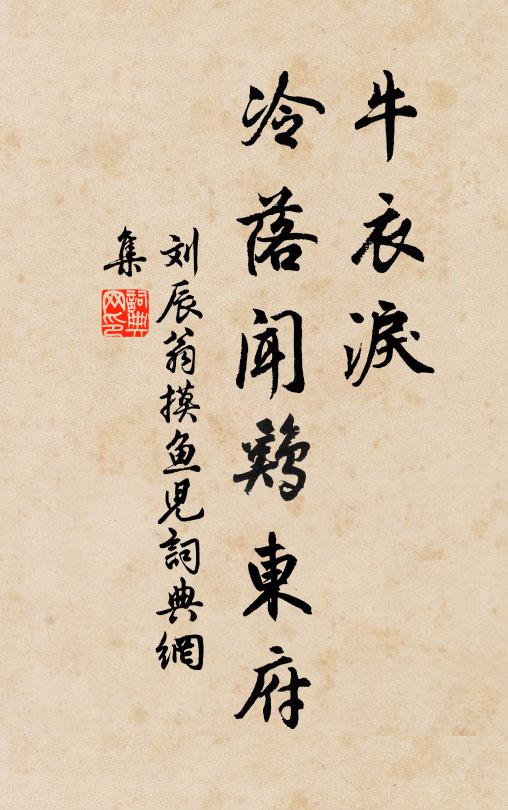 牛衣淚
冷落聞鷄東府
刘辰翁摸鱼兒詞典網
集
詞典
网印